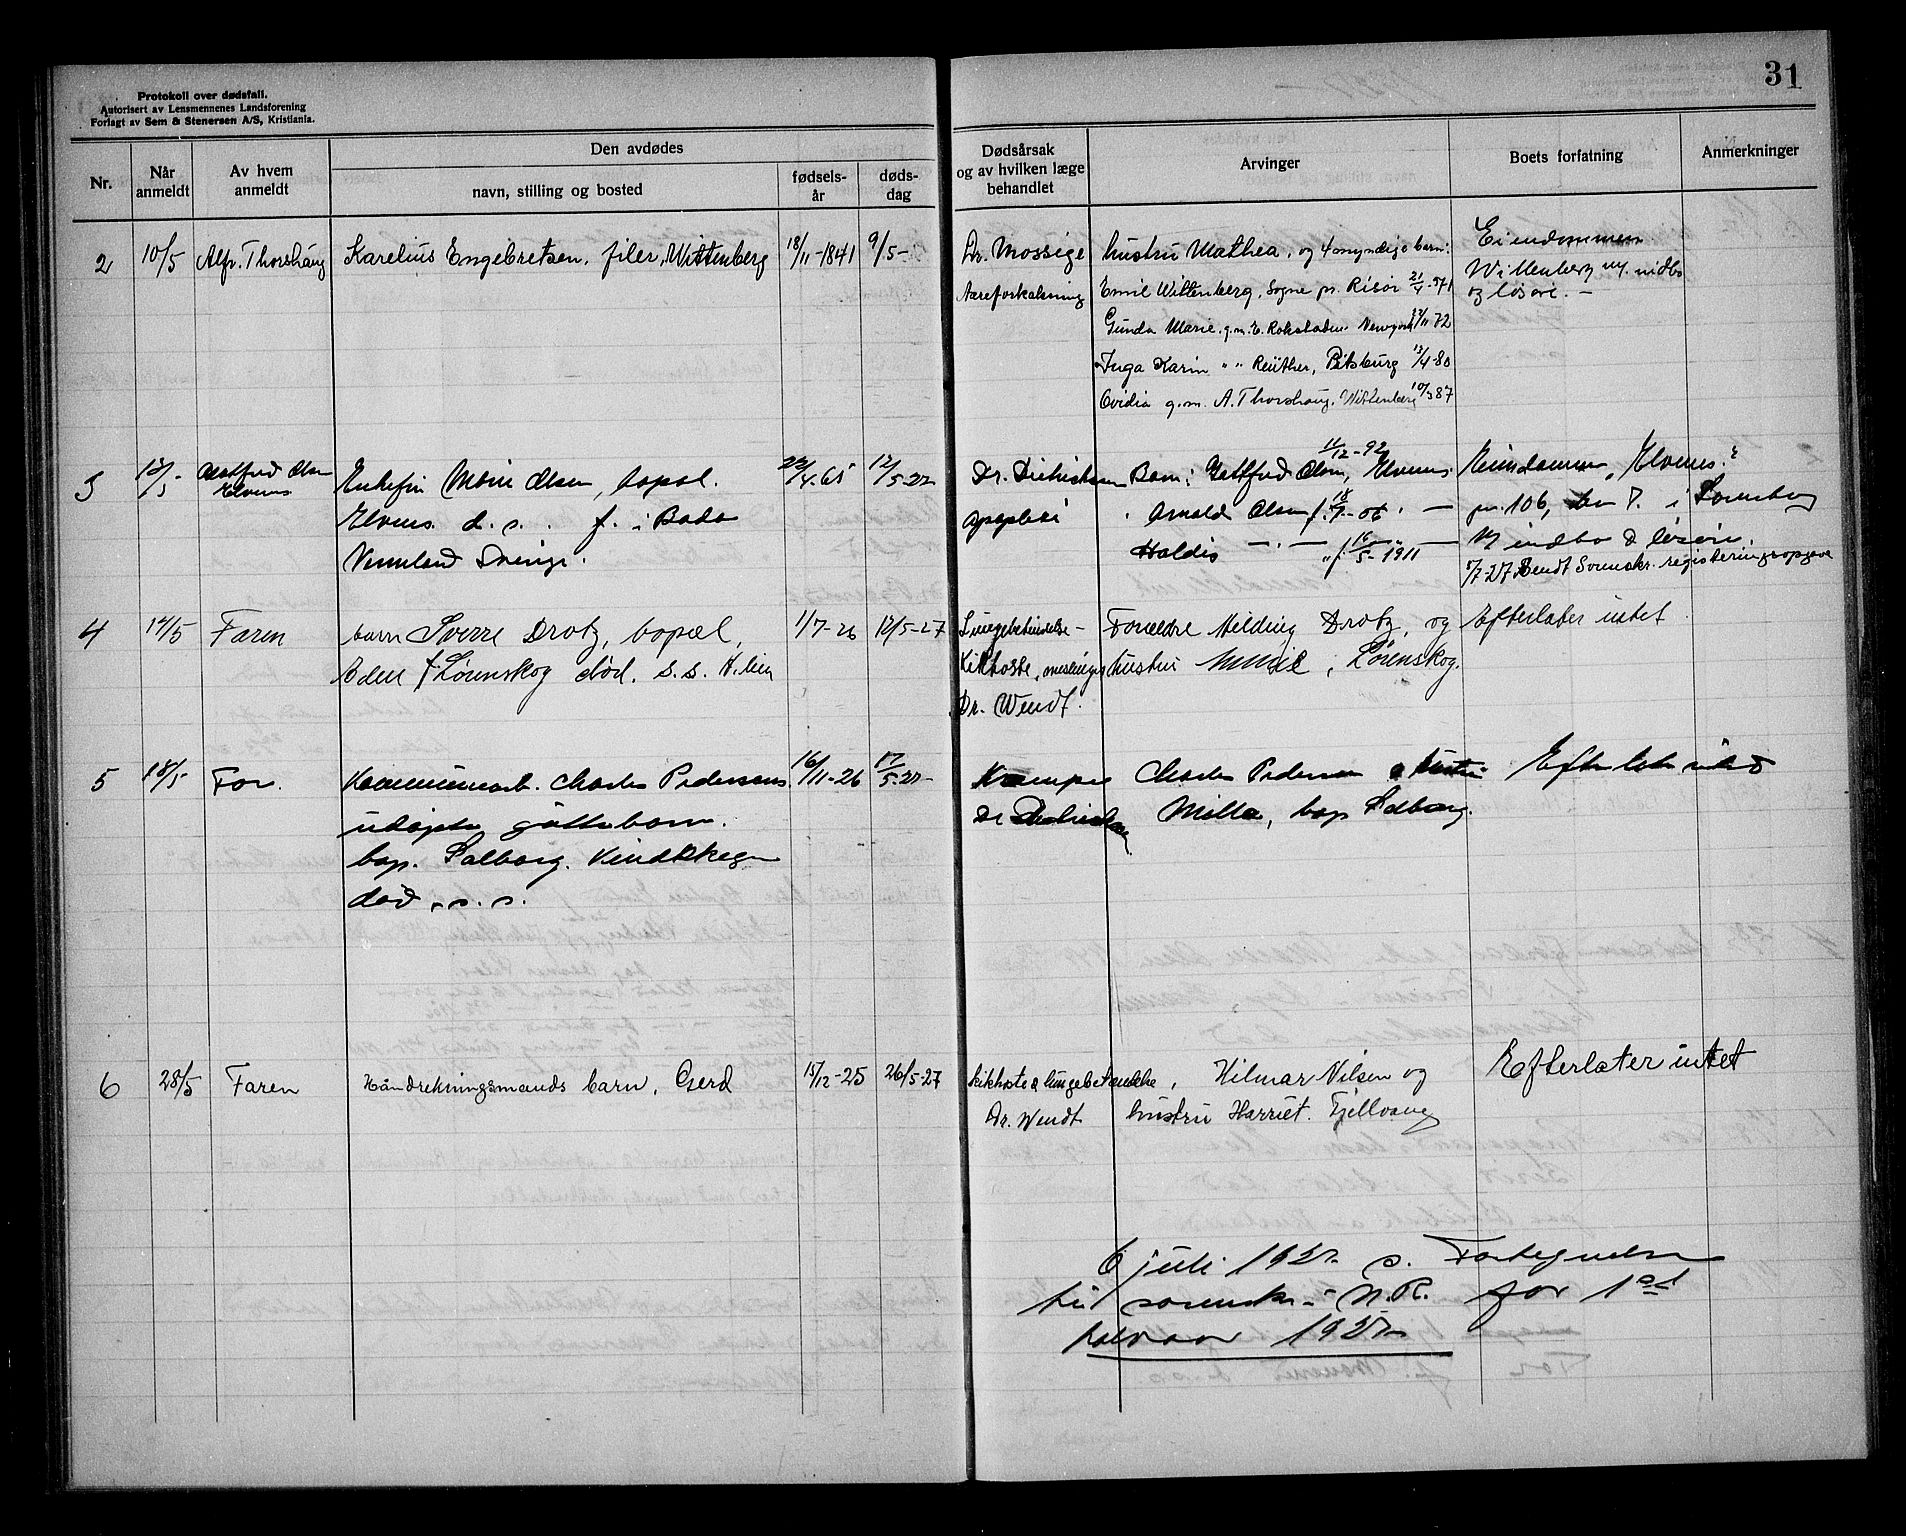 Protokoll over dødsfall.
Autorisert av Lensmennenes Landsforening
Forlagt av Sem & Stenersen A/S, Kristiania.
31
Nr.
Når anmeldt
Av hvem anmeldt
Den avdødes
navn, stilling og bosted
fødsels-år
døds-dag
Dødsårsak og av hvilken læge behandlet
Arvinger
Boets forfatning
Anmerkninger
2 10/5 Alfr. Thorshaug Karelius Engebretsen, filer, Wittenberg 18/11-1841 9/5- Dr. Mossige hustru Mathea, og 4 myndige barn: Eiendommen
Aareforkalkning Emil Wittenberg, Sogne pr. Risør 21/4- Wittenberg m. indbo
Gunda Marie. g.m. E. Newyork /11 72 og løsøre. -
Inga Karin " " Reuther, Pitsburg 13/4-80
Ovidia g.m. A. Thorshaug, Wittenberg 10/3 87
3 12/5- Gottfred Olsen Elvenes Enkefru Marie Olsen, bopæl. 22/4-65 12/5-27 Dr. Barn: Gottfred Olsen, Elvenes 11/12-92 Eiendommen "Elvenes"
Elvenes d. s. f. i Bada apoplexi " Arnold Olsen f. 18/7-06 " — gn. 106, bn 7. i
Vermland Sverige. Haldis — " — " f. 16/5-1911 — m/ indbo & løsøre.
5/7-27 Sendt Sorenskr. registreringsopgave
4 14/5 Faren barn Sverre Drotz, bopæl, 1/7-26 12/5-27 Lungebetændelse - Forældre Hilding Drotz, og Efterlater intet
f Lørenskog død. s.s. Kikhoste, meslinger hustru, Lørenskog.
Dr. Wendt.
5 18/5- Far. Kommunearb. Charles Pedersens 16/11-26 17/5-27- Krampe Charles Pedersen & hustru Efterlater intet
udøpte guttebarn. Dr Milla, bop Solborg.
bop. Solborg.
død. s. s.
6 28/5 Faren Håndrekningsmands barn, Gerd 15/12-25 26/5-27 kikhoste & lungebetændelse, Hilmar Nilsen og Efterlater intet
Dr. Wendt hustru Harriet. Fjellvang
6 juli 1927 s. Fortegnelse
til sorenskr. i N.R. for 1st
halvaar 1927